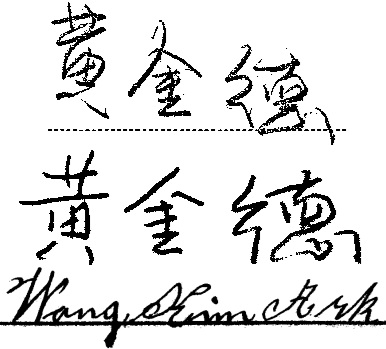 黄金德
黄金德
Wong Kim Ark